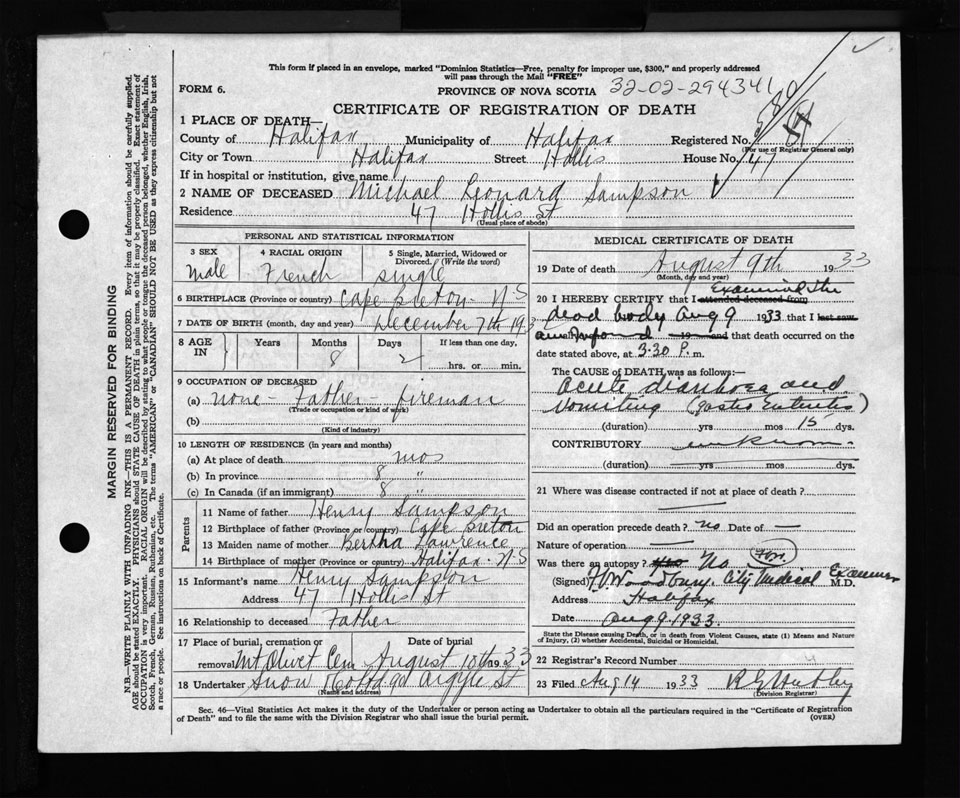 This form if placed in an envelope, marked "Dominion Statistics—Free, penalty for improper use, $300," and properly addressed
will pass through the Mail "FREE"
FORM 6.
PROVINCE OF NOVA SCOTIA 32-02-294341
CERTIFICATE OF REGISTRATION OF DEATH
1 PLACE OF DEATH—
County of Halifax Municipality of Halifax Registered No.
(For use of Registrar General only)
City or Town Halifax Street Hollis House No. 47
If in hospital or institution, give name
2 NAME OF DECEASED Michael Leonard Sampson
Residence 47 Hollis St
(Usual place of abode)
PERSONAL AND STATISTICAL INFORMATION
3 SEX 4 RACIAL ORIGIN 5 Single, Married, Widowed or
Divorced. (Write the word)
male French single
6 BIRTHPLACE (Province or country) Cape Breton - N.S
7 DATE OF BIRTH (month, day and year) December 7th 193
8 AGE IN Years Months Days If less than one day,
8 2 hrs. or min.
9 OCCUPATION OF DECEASED
(a) none - Father - fireman
(Trade or occupation or kind of work)
(b)
(Kind of industry)
10 LENGTH OF RESIDENCE (in years and months)
(a) At place of death mos
(b) In province 8 "
(c) In Canada (if an immigrant) 8 "
Parents
11 Name of father Henry Sampson
12 Birthplace of father (Province or country) Cape Breton
13 Maiden name of mother Bertha Lawrence
14 Birthplace of mother (Province or country) Halifax. N-S
15 Informant's name Henry Sampson
Address 47 Hollis St
16 Relationship to deceased Father
17 Place of burial, cremation or removal Date of burial
Mt Olivet Cem August 10th 1933
18 Undertaker Snow & Co Ltd 90 Argyle St
(Name and address)
MEDICAL CERTIFICATE OF DEATH
19 Date of death August 9th 1933
(Month, day and year)
20 I HEREBY CERTIFY that I attended deceased from Examined the
dead body Aug 9 1933 that I last saw
and that death occurred on the
date stated above, at 3.30 P. m.
The CAUSE OF DEATH was as follows:—
Acute diarrhoea and
Vomiting (Gastro Enteritis)
(duration) yrs mos 15 dys.
CONTRIBUTORY unknown -
(duration) yrs mos dys.
21 Where was disease contracted if not at place of death?
Did an operation precede death? No Date of —
Nature of operation —
Was there an autopsy? No
(Signed) Woodbury. City Medical Examiner M.D.
Address Halifax
Date Aug 9. 1933.
State the Disease causing Death, or in death from Violent Causes, state (1) Means and Nature
of Injury, (2) whether Accidental, Suicidal or Homicidal.
22 Registrar's Record Number
23 Filed Aug 14 1933
(Division Registrar)
Sec. 46—Vital Statistics Act makes it the duty of the Undertaker or person acting as Undertaker to obtain all the particulars required in the "Certificate of Registration
of Death" and to file the same with the Division Registrar who shall issue the burial permit.
(OVER)
MARGIN RESERVED FOR BINDING
N.B.—WRITE PLAINLY WITH UNFADING INK—THIS IS A PERMANENT RECORD. Every item of information should be carefully supplied.
AGE should be stated EXACTLY. PHYSICIANS should STATE CAUSE OF DEATH in plain terms, so that it may be properly classified. Exact statement of
OCCUPATION is very important. RACIAL ORIGIN will be described by stating to what people or tongue the deceased person belonged, whether English, Irish,
Scotch, French, German, Russian, Ruthenian, etc. The terms "AMERICAN" or "CANADIAN" SHOULD NOT BE USED as they express citizenship but not
a race or people. See instructions on back of Certificate.